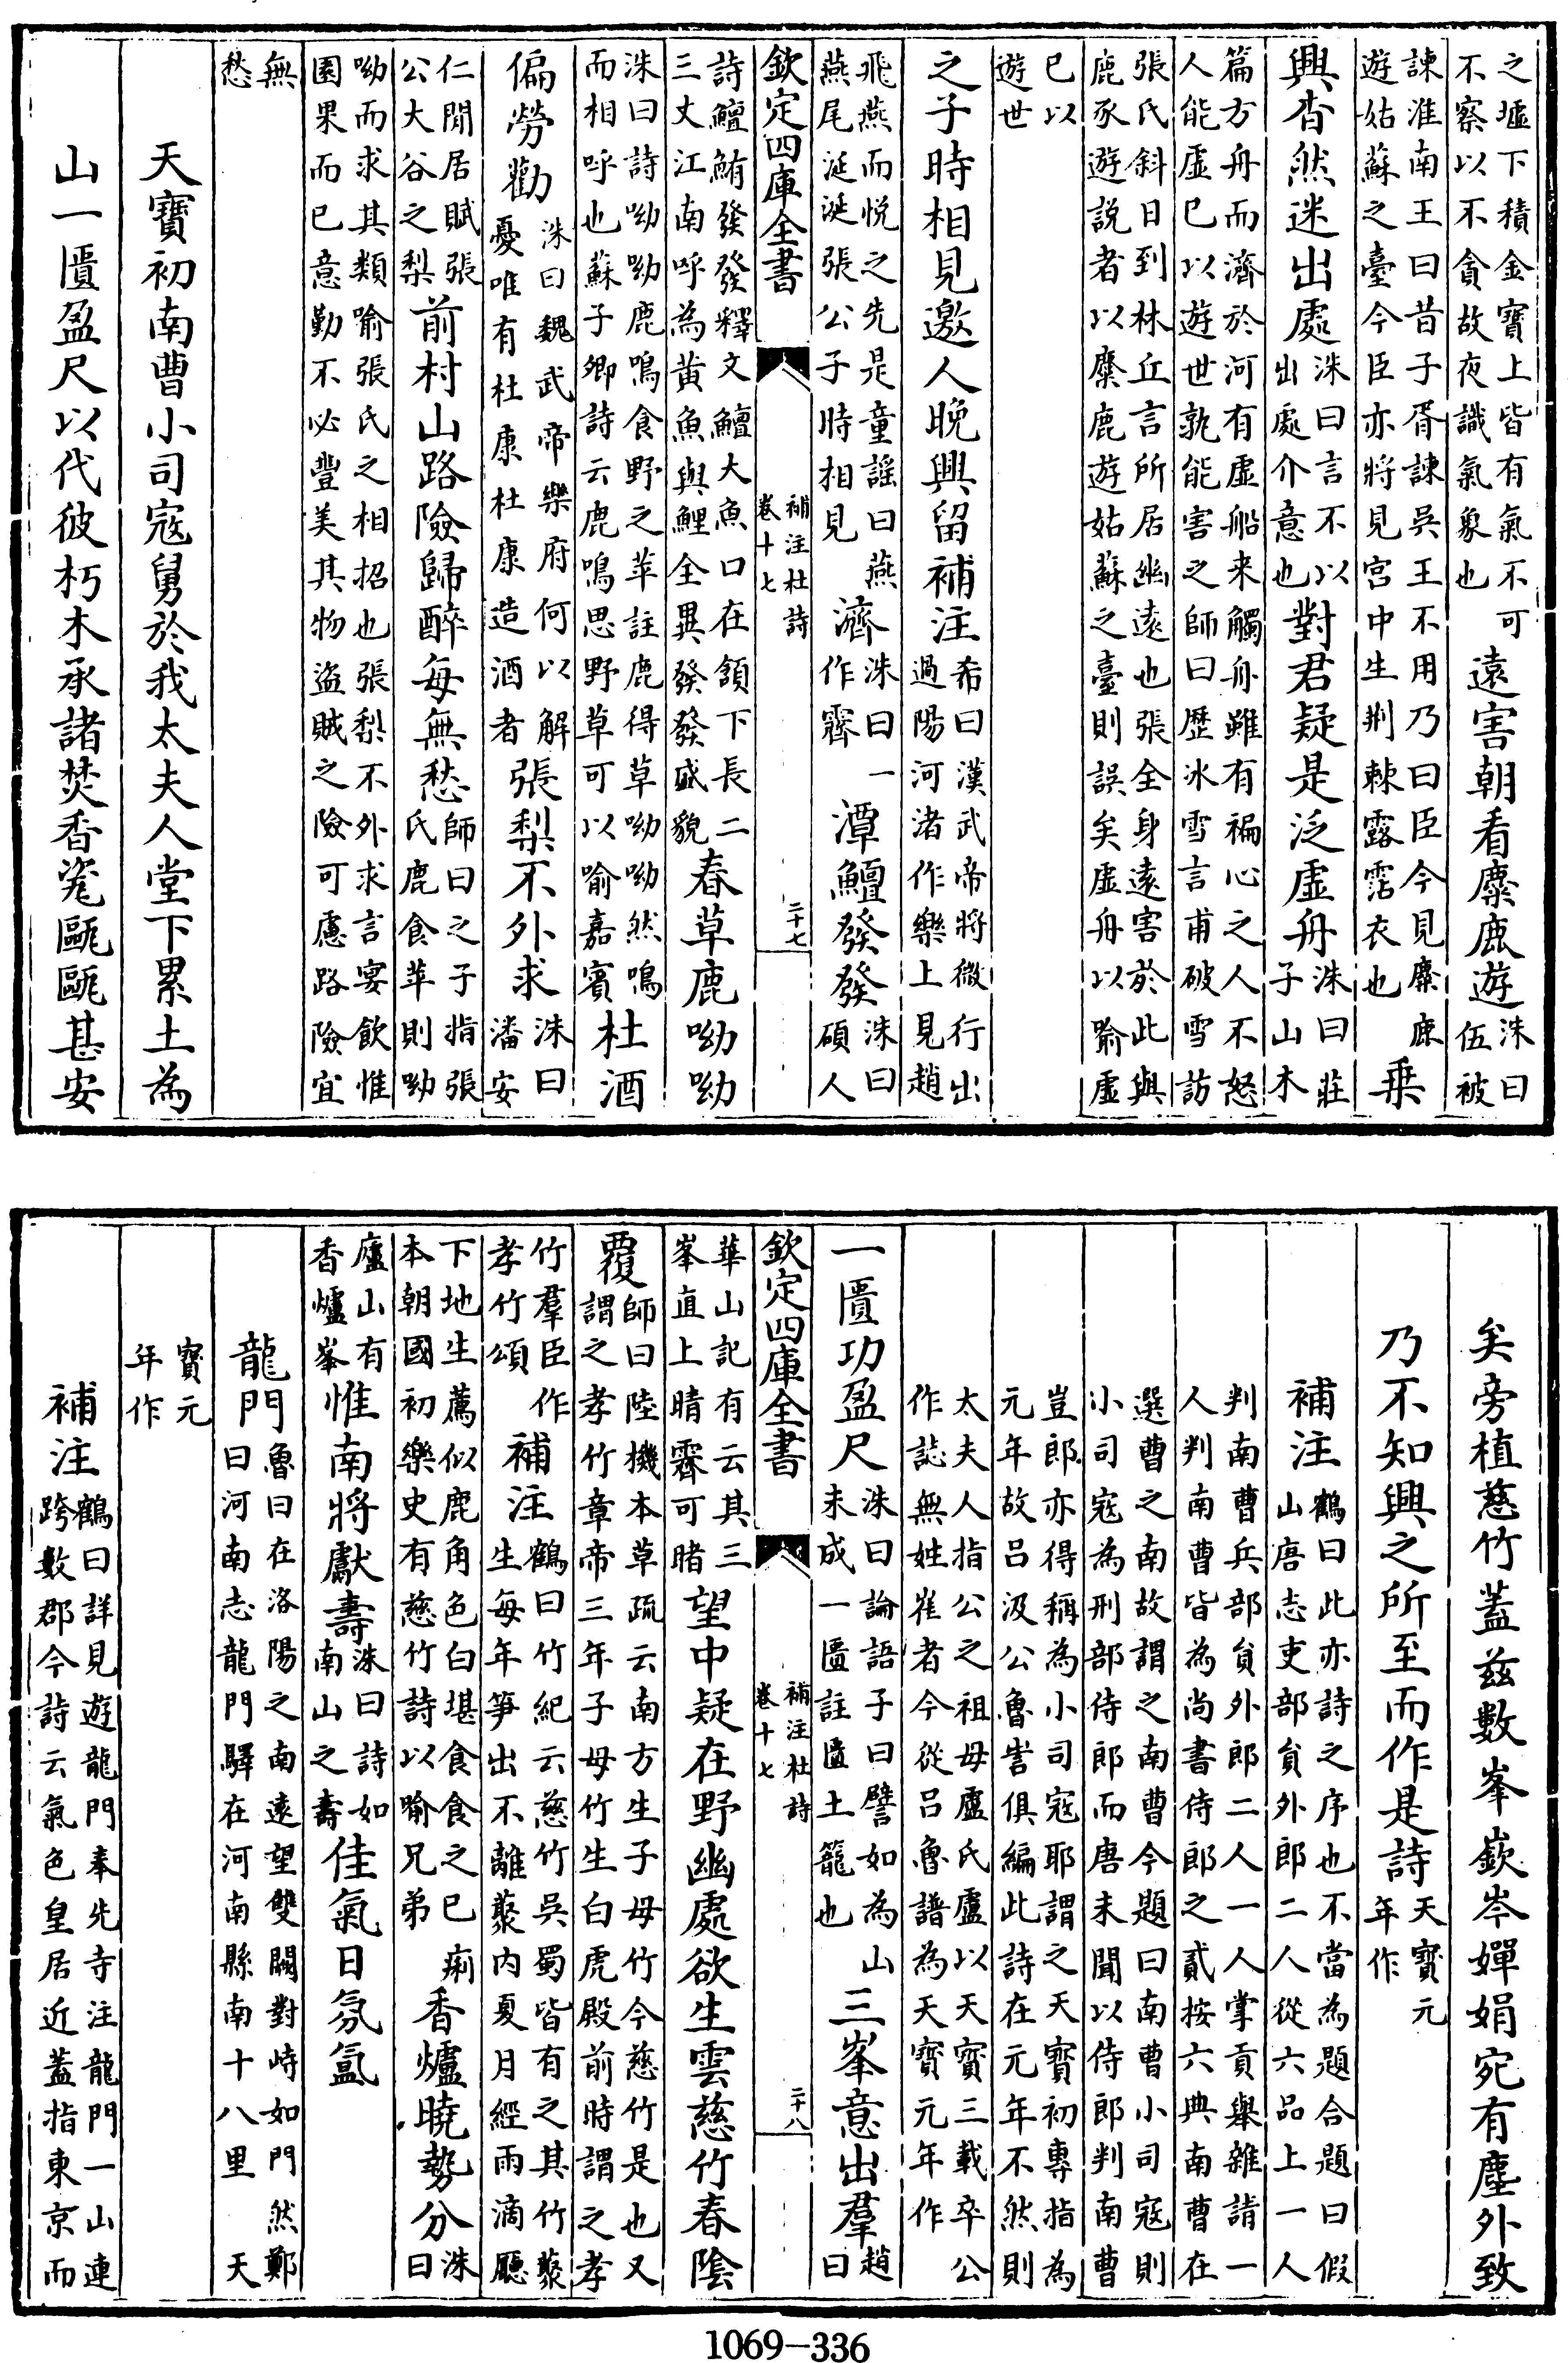 之墟下積金寶上皆有氣不可
不察以不貪故夜識氣象也
遠害朝看麋鹿遊
洙曰
伍被
諫淮南王曰昔子胥諫吳王不用乃曰臣今見麋鹿
遊姑蘇之臺今臣亦將見宮中生荆棘露霑衣也
乗
興杳然迷出處
洙曰言不以
出處介意也
對君疑是泛虚舟
洙曰莊
子山木
篇方舟而濟於河有虚船来觸舟雖有褊心之人不怒
人能虚已以遊世孰能害之師曰歴冰雪言甫破雪訪
張氏斜日到林丘言所居幽遠也張全身遠害於此與
鹿豕遊説者以麋鹿遊姑蘇之臺則誤矣虚舟以喻虚
已以
遊世
之子時相見邀人晩興留補注
希曰漢武帝將微行出
過陽河渚作樂上見趙
飛燕而悦之先是童謡曰燕
燕尾涎涎張公子時相見
濟
洙曰一
作霽
潭鱣發發
洙曰
碩人
欽定四庫全書
補注杜詩
卷十七
二十七
詩鱣鮪發發釋文鱣大魚口在頷下長二
三丈江南呼為黄魚與鯉全異發發盛貌
春草鹿呦呦
洙曰詩呦呦鹿鳴食野之苹註鹿得草呦呦然鳴
而相呼也蘇子卿詩云鹿鳴思野草可以喻嘉賓
杜酒
偏勞勸
洙曰魏武帝樂府何以解
憂唯有杜康杜康造酒者
張梨不外求
洙曰
潘安
仁閒居賦張
公大谷之梨
前村山路險歸醉每無愁
師曰之子指張
氏鹿食苹則呦
呦而求其類喻張氏之相招也張梨不外求言宴飲惟
園果而已意勤不必豐美其物盗賊之險可慮路險宜
無
愁
天寶初南曹小司寇舅於我太夫人堂下累土為
山一匱盈尺以代彼朽木承諸焚香瓷甌甌甚安
矣旁植慈竹蓋兹數峯嶔岑嬋娟宛有塵外致
乃不知興之所至而作是詩
天寶元
年作
補注
鶴曰此亦詩之序也不當為題合題曰假
山唐志吏部貟外郎二人從六品上一人
判南曹兵部貟外郎二人一人掌貢舉雜請一
人判南曹皆為尚書侍郎之貳按六典南曹在
選曹之南故謂之南曹今題曰南曹小司寇則
小司寇為刑部侍郎而唐未聞以侍郎判南曹
豈郎亦得稱為小司寇耶謂之天寶初專指為
元年故吕汲公魯訔俱編此詩在元年不然則
太夫人指公之祖母盧氏盧以天寶三載卒公
作誌無姓崔者今從吕魯譜為天寶元年作
一匱功盈尺
洙曰論語子曰譬如為山
未成一匱註匱土籠也
三峯意出羣
趙
曰
欽定四庫全書
補注杜詩
卷十七
二十八
華山記有云其三
峯直上晴霽可睹
望中疑在野幽處欲生雲慈竹春陰
覆
師曰陸機本草疏云南方生子母竹今慈竹是也又
謂之孝竹章帝三年子母竹生白虎殿前時謂之孝
竹羣臣作
孝竹頌
補注
鶴曰竹紀云慈竹吳蜀皆有之其竹藂
生每年笋出不離藂内夏月經雨滴廳
下地生蔫似鹿角色白堪食食之已痢
本朝國初樂史有慈竹詩以喻兄弟
香爐曉勢分
洙
曰
廬山有
香爐峯
惟南將獻壽
洙曰詩如
南山之壽
佳氣日氛氲
龍門
魯曰在洛陽之南遠望雙闕對峙如門然鄭
曰河南志龍門驛在河南縣南十八里 天
寳元
年作
補注
鶴曰詳見遊龍門奉先寺注龍門一山連
跨數郡今詩云氣色皇居近蓋指東京而
1069-336